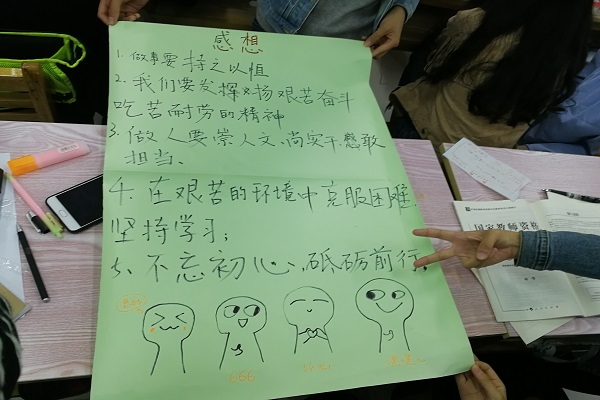 感想
1. 做事要持之以恒
2. 我们要发挥发扬艰苦奋斗
吃苦耐劳的精神
3. 做人要崇人文、尚实干、懋敢
担当、
4. 在艰苦的环境中克服困难
坚持学习;
5、不忘初心、砥砺前行。
666
国家教师资格